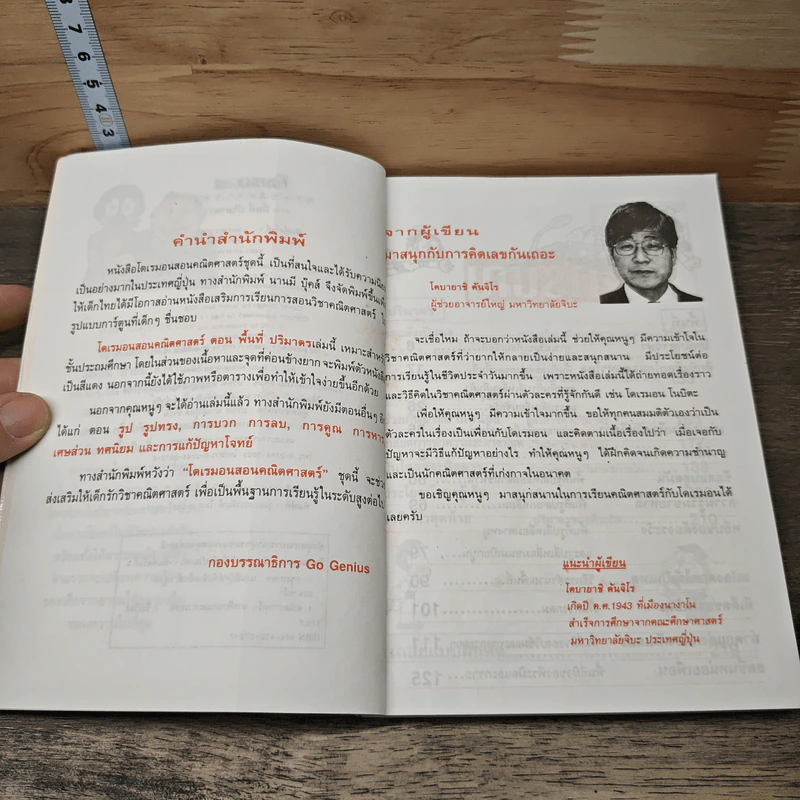 8
7
6
5
4
3
คำนำสำนักพิมพ์
หนังสือโดเรมอนสอนคณิตศาสตร์ชุดนี้ เป็นที่สนใจและได้รับความนิยม
เป็นอย่างมากในประเทศญี่ปุ่น ทางสำนักพิมพ์ นานมี บุ๊คส์ จึงจัดพิมพ์ขึ้นเพื่อ
ให้เด็กไทยได้มีโอกาสอ่านหนังสือเสริมการเรียนการสอนวิชาคณิตศาสตร์
รูปแบบการ์ตูนที่เด็กๆ ชื่นชอบ
โดเรมอนสอนคณิตศาสตร์ ตอน พื้นที่ ปริมาตรเล่มนี้ เหมาะสำหรับ
ชั้นประถมศึกษา โดยในส่วนของเนื้อหาและจุดที่ค่อนข้างยาก จะพิมพ์ตัวหนังสือ
เป็นสีแดง นอกจากนี้ยังได้ใช้ภาพหรือตารางเพื่อทำให้เข้าใจง่ายขึ้นอีกด้วย
นอกจากคุณหนูๆ จะได้อ่านเล่มนี้แล้ว ทางสำนักพิมพ์ยังมีตอนอื่นๆ
ได้แก่ ตอน รูป รูปทรง, การบวก การลบ, การคูณ การหาร,
เศษส่วน ทศนิยม และการแก้ปัญหาโจทย์
ทางสำนักพิมพ์หวังว่า "โดเรมอนสอนคณิตศาสตร์" ชุดนี้ จะช่วย
ส่งเสริมให้เด็กรักวิชาคณิตศาสตร์ เพื่อเป็นพื้นฐานการเรียนรู้ในระดับสูงต่อไป
กองบรรณาธิการ Go Genius
จากผู้เขียน
มาสนุกกับการคิดเลขกันเถอะ
โคบายาชิ คันจิโร
ผู้ช่วยอาจารย์ใหญ่ มหาวิทยาลัยจิบะ
จะเชื่อไหม ถ้าจะบอกว่าหนังสือเล่มนี้ ช่วยให้คุณหนูๆ มีความเข้าใจใน
วิชาคณิตศาสตร์ที่ว่ายากให้กลายเป็นง่ายและสนุกสนาน มีประโยชน์ต่อ
การเรียนรู้ในชีวิตประจำวันมากขึ้น เพราะหนังสือเล่มนี้ได้ถ่ายทอดเรื่องราว
และวิธีคิดในวิชาคณิตศาสตร์ผ่านตัวละครที่รู้จักกันดี เช่น โดเรมอน โนบิตะ
เพื่อให้คุณหนูๆ มีความเข้าใจมากขึ้น ขอให้ทุกคนสมมติตัวเองว่าเป็น
ตัวละครในเรื่องเป็นเพื่อนกับโดเรมอน และคิดตามเนื้อเรื่องไปว่า เมื่อเจอกับ
ปัญหาจะมีวิธีแก้ปัญหาอย่างไร ทำให้คุณหนูๆ ได้ฝึกคิดจนเกิดความชำนาญ
และเป็นนักคณิตศาสตร์ที่เก่งกาจในอนาคต
ขอเชิญคุณหนูๆ มาสนุกสนานในการเรียนคณิตศาสตร์กับโดเรมอนได้
เลยครับ
แนะนำผู้เขียน
โคบายาชิ คันจิโร
เกิดปี ค.ศ.1943 ที่เมืองนางาโน
สำเร็จการศึกษาจากคณะศึกษาศาสตร์
มหาวิทยาลัยจิบะ ประเทศญี่ปุ่น